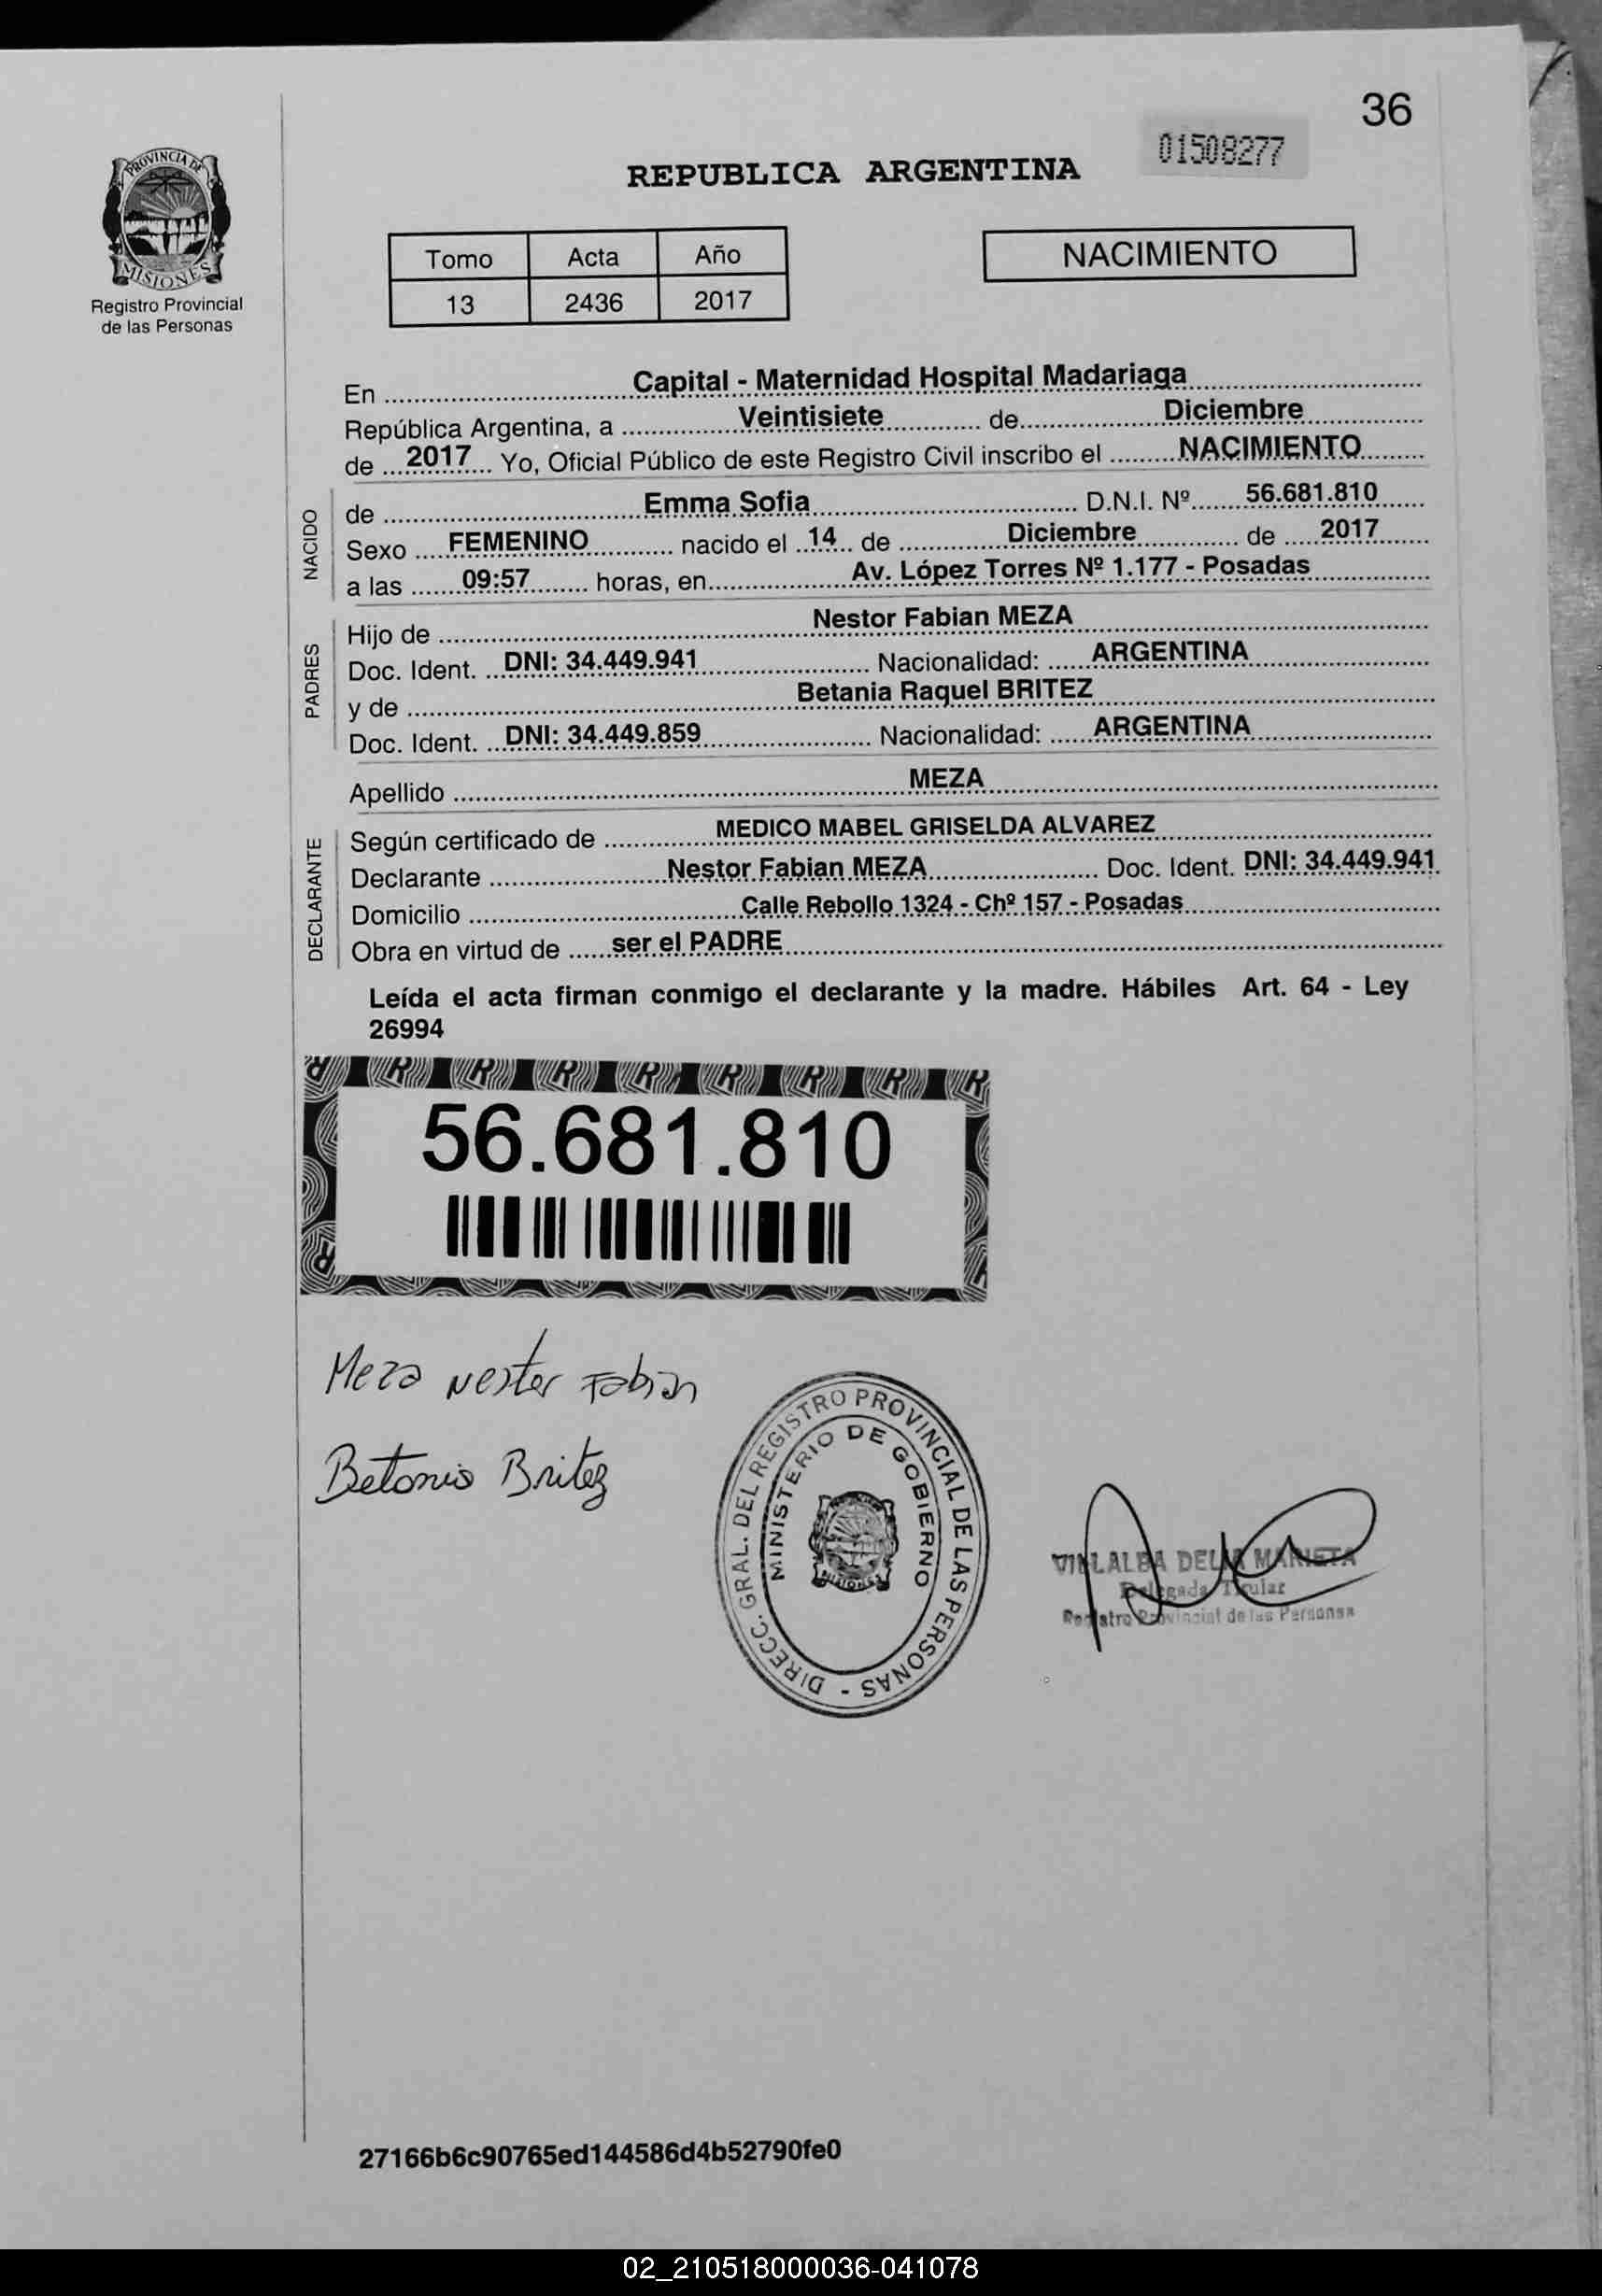 36
01508277
REPUBLICA ARGENTINA
PROVINCIA DE
MISIONES
Registro Provincial
de las Personas
Tomo Acta Año
13 2436 2017
NACIMIENTO
En Capital - Maternidad Hospital Madariaga
República Argentina, a Veintisiete de Diciembre
de 2017 Yo, Oficial Público de este Registro Civil inscribo el NACIMIENTO
NACIDO
de Emma Sofia D.N.I. Nº 56.681.810
Sexo FEMENINO nacido el 14 de Diciembre de 2017
a las 09:57 horas, en Av. López Torres Nº 1.177 - Posadas
PADRES
Hijo de Nestor Fabian MEZA
Doc. Ident. DNI: 34.449.941 Nacionalidad: ARGENTINA
y de Betania Raquel BRITEZ
Doc. Ident. DNI: 34.449.859 Nacionalidad: ARGENTINA
Apellido MEZA
DECLARANTE
Según certificado de MEDICO MABEL GRISELDA ALVAREZ
Declarante Nestor Fabian MEZA Doc. Ident. DNI: 34.449.941
Domicilio Calle Rebollo 1324 - Chº 157 - Posadas
Obra en virtud de ser el PADRE
Leída el acta firman conmigo el declarante y la madre. Hábiles Art. 64 - Ley
26994
56.681.810
Meza Nestor Fabian
Betania Britez
DIRECC. GRAL. DEL REGISTRO PROVINCIAL DE LAS PERSONAS -
MINISTERIO DE GOBIERNO
MISIONES
VILLALBA DELIA MARIETA
Delegada Titular
Registro Provincial de las Personas
27166b6c90765ed144586d4b52790fe0
02_210518000036-041078